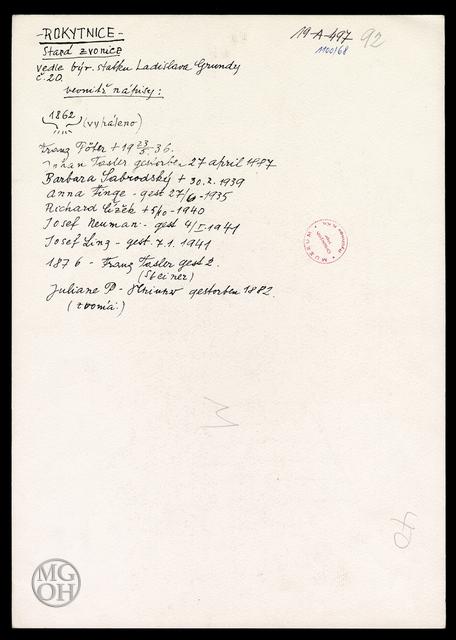 -ROKYTNICE-
19-A-497
92
1100/68
Stará zvonice
vedle býv. statku Ladislava Grundy
č. 20.
vevnitř nápisy:
1862
(vypáleno)
Franz Töter + 19 23/5 36.
Tasler gestorben 27 april 1887
Barbara Sabrodský + 30.2. 1939
Anna Finge - gest 27/6 - 1935
Richard - 1940
Josef Neuman - gest 4/I 1941
Josef Linz - gest. 7.1. 1941
1876 - Franz Tasler gest 2.
(Steiner)
Juliane P- gestorben 1882.
MUZEUM
MG
OH